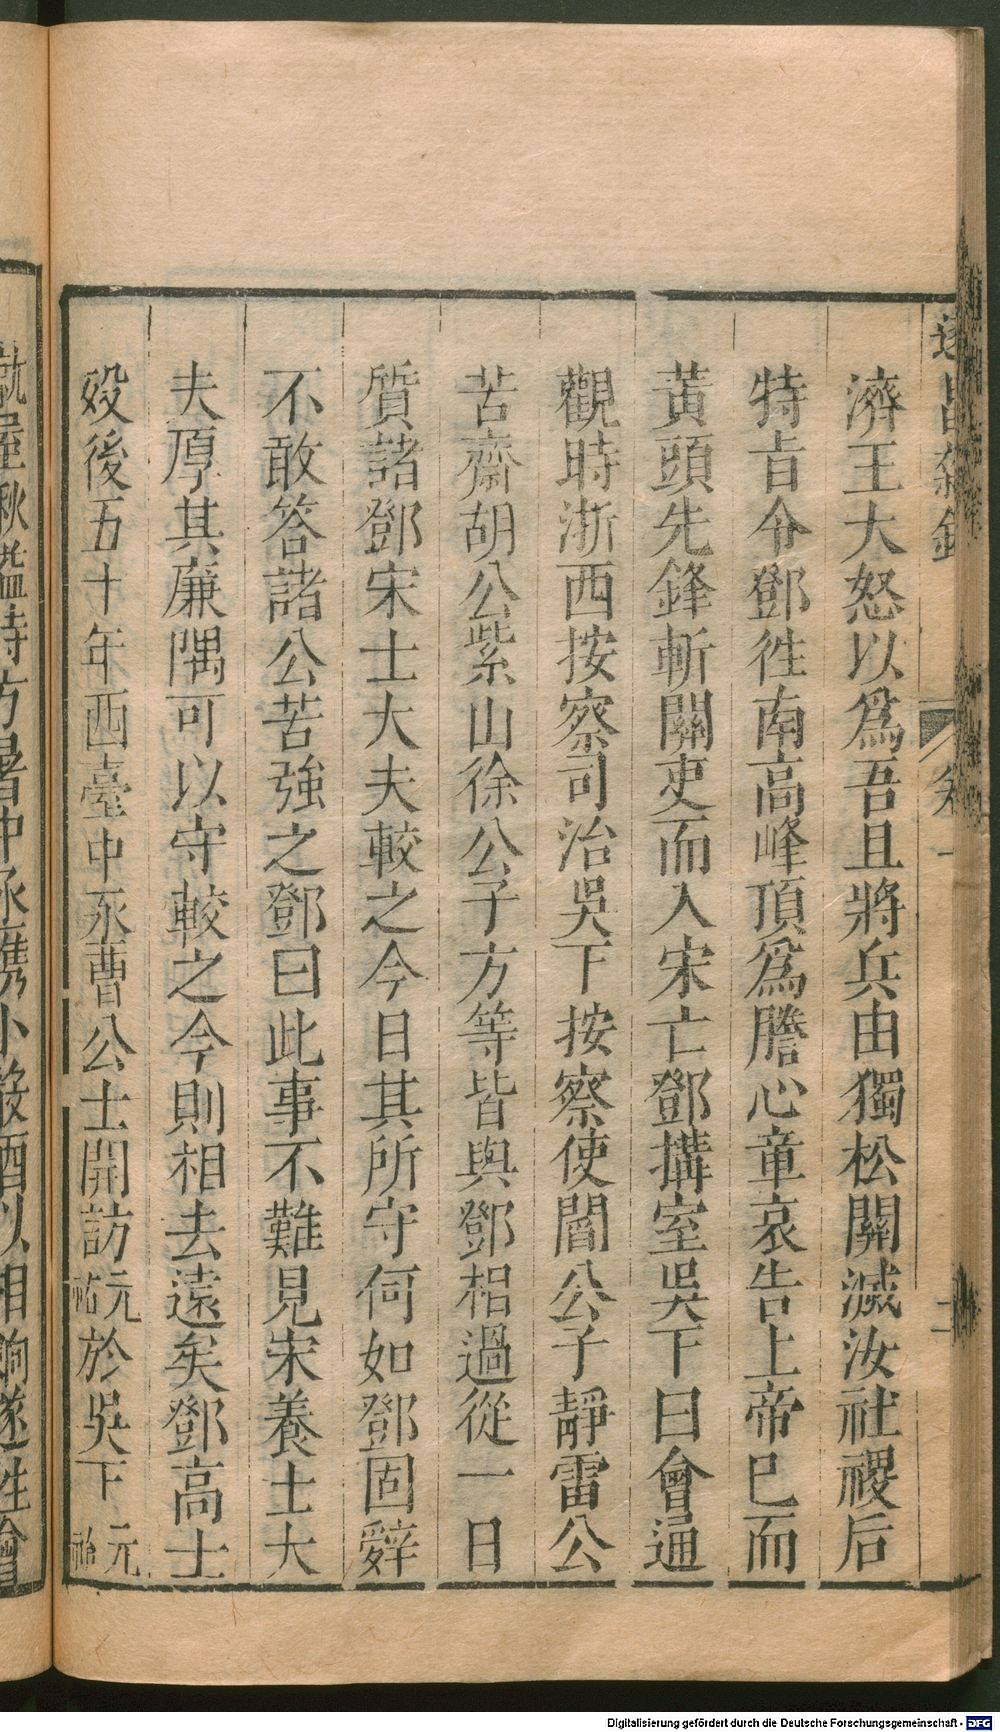 濟王大怒以爲吾且將兵由獨松關滅汝社稷后
特旨令鄧徃南高峰頂爲膽心章哀告上帝巳而
黃頭先鋒斬關吏而入宋亡鄧搆室吳下曰會通
觀時浙西按察司治吳下按察使閻公子靜雷公
苦齋胡公紫山徐公子方等皆與鄧相過從一日
質諸鄧宋士大夫較之今日其所守何如鄧固辭
不敢答諸公苦強之鄧曰此事不難見宋養士大
夫厚其廉隅可以守較之今則相去遠矣鄧高士
歿後五十年西臺中丞曹公士開訪元祐於吳下元祐
就屋秋 時方暑中丞携小 酒以相餉遂徃會
遂昌雜錄
卷一
二
Digitalisierung gefördert durch die Deutsche Forschungsgemeinschaft - DFG